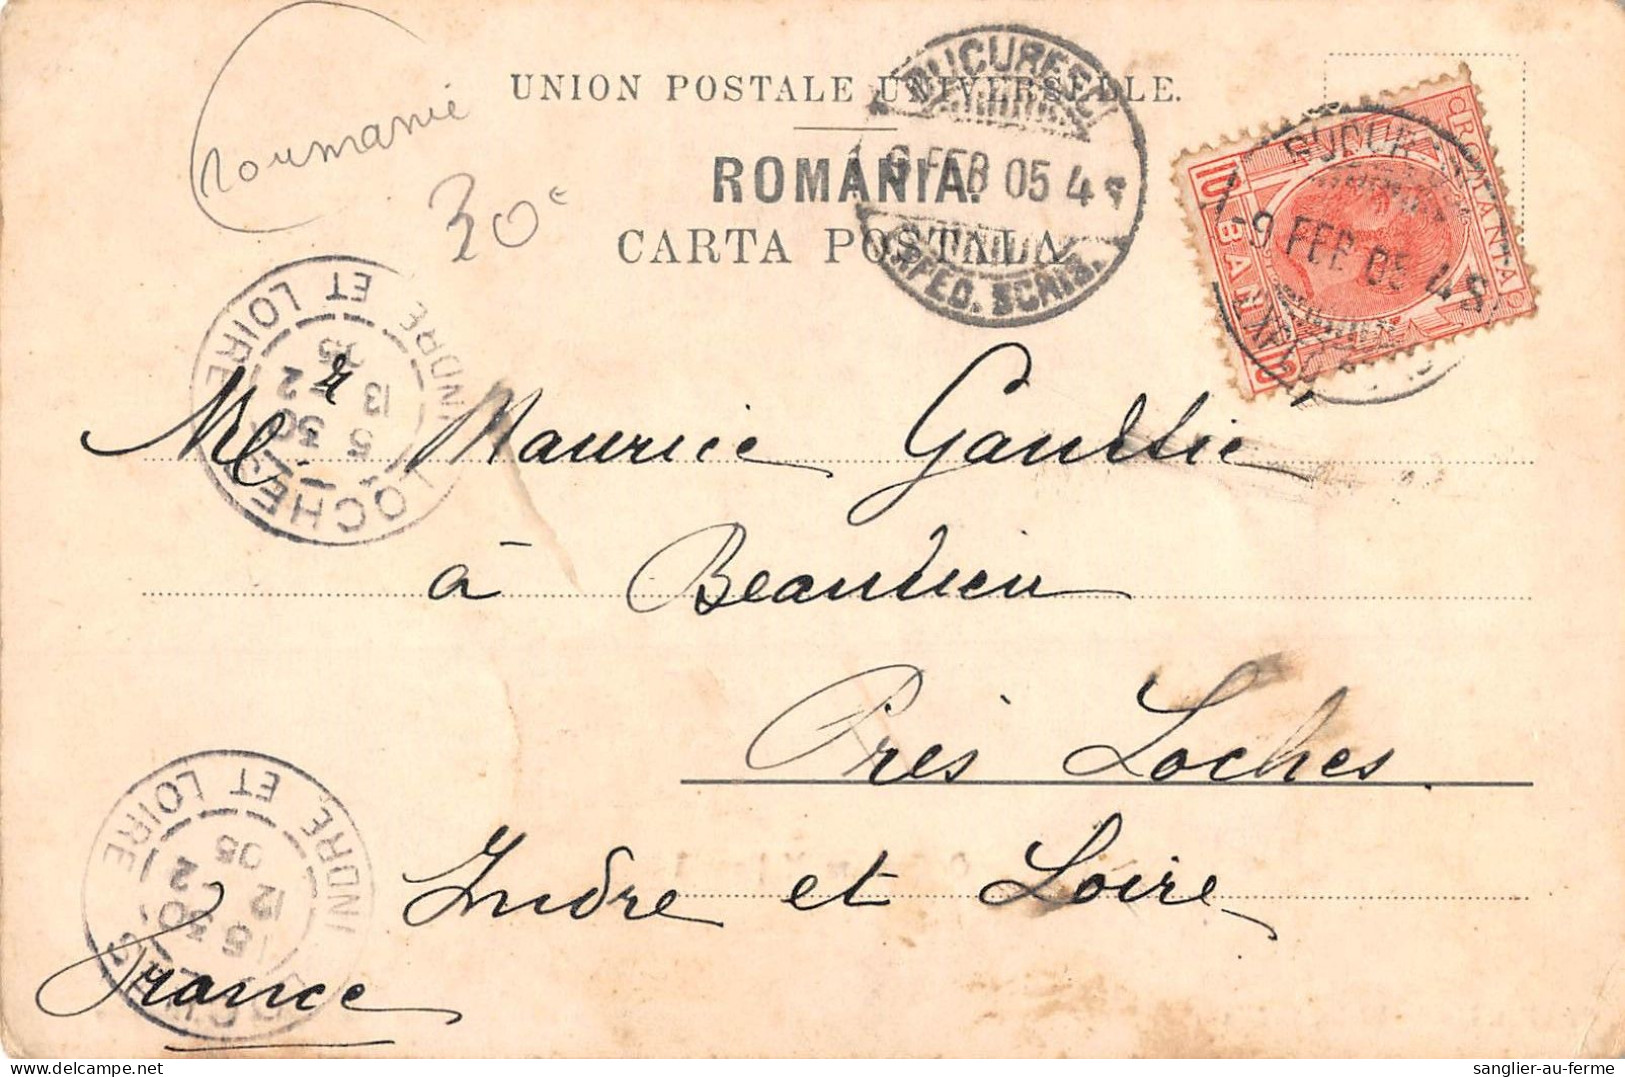 Roumanie
30c
UNION POSTALE UNIVERSELLE.
ROMÂNIA.
CARTA POSTALA
BUCURESCI
9 FEB 05 4 S
ROMANIA
10 BANI 10
BUCURESCI
9 FEB 05 4 S
LOCHES
INDRE ET LOIRE
5 30
13
2
05
Mr Maurice Gaultier
à Beaulieu
Près Loches
Indre et Loire
France
LOCHES
INDRE ET LOIRE
16 30
12
2
05
sanglier-au-ferme